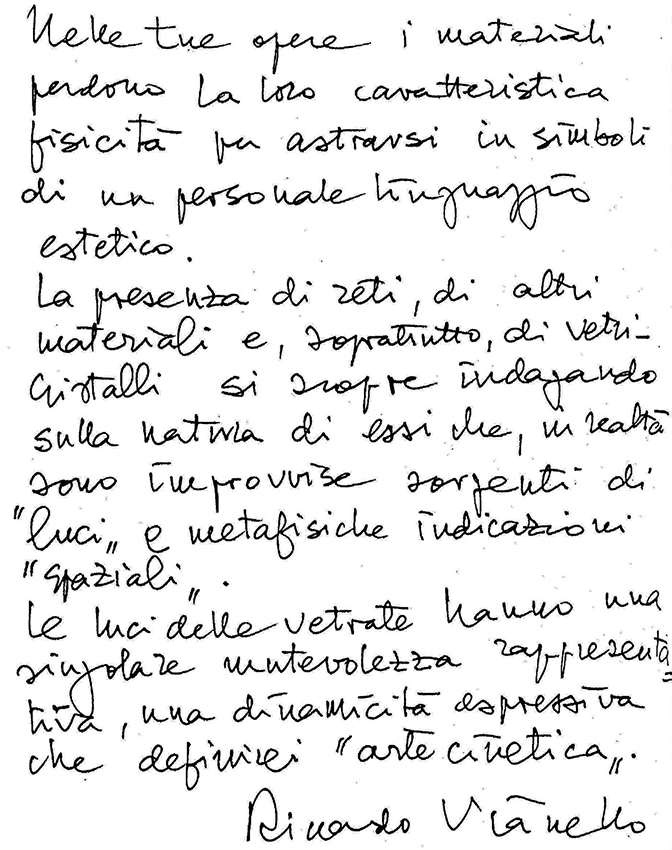 Nelle tue opere i materiali
perdono la loro caratteristica
fisicità per astrarsi in simboli
di un personale linguaggio
estetico.
La presenza di reti, di altri
materiali e, sopratutto, di vetri-
Cristalli si scopre indagando
sulla natura di essi che, in realtà
sono improvvise sorgenti di
"luci„ e metafisiche indicazioni
"spaziali„.
Le luci delle vetrate hanno una
singolare mutevolezza rappresenta
=
tiva, una dinamicità espressiva
che definirei "arte cinetica„.
Riccardo Vianello